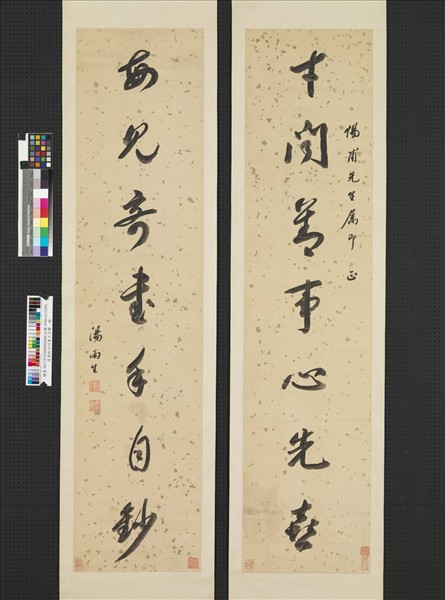 惕甫先生屬即正
才聞善事心先喜
每見奇書手自鈔
湯雨生